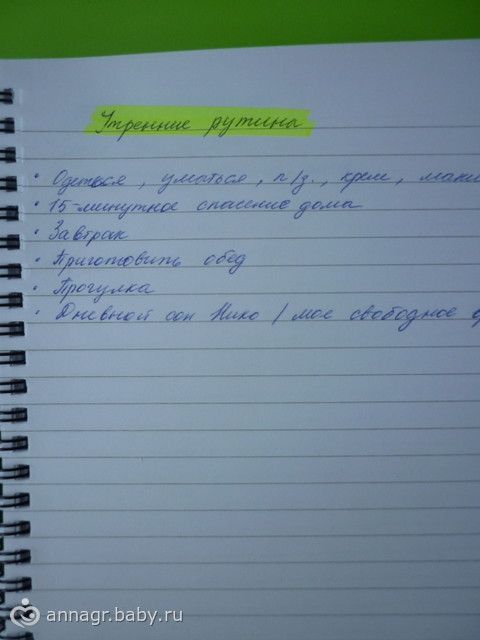 Утренние рутины
• Одеться, умыться, п/з., крем, маки
• 15-минутное спасение дома
• Завтрак
• Приготовить обед
• Прогулка
• Дневной сон Нико / мое свободное в
annagr.baby.ru